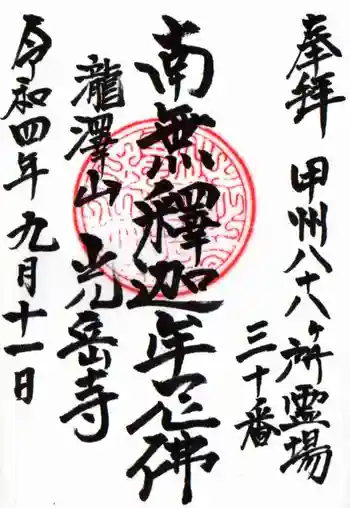 奉拝
甲州八十八ヶ所霊場
三十番
南無釋迦牟尼佛
瀧澤山
光岳寺
令和四年九月十一日